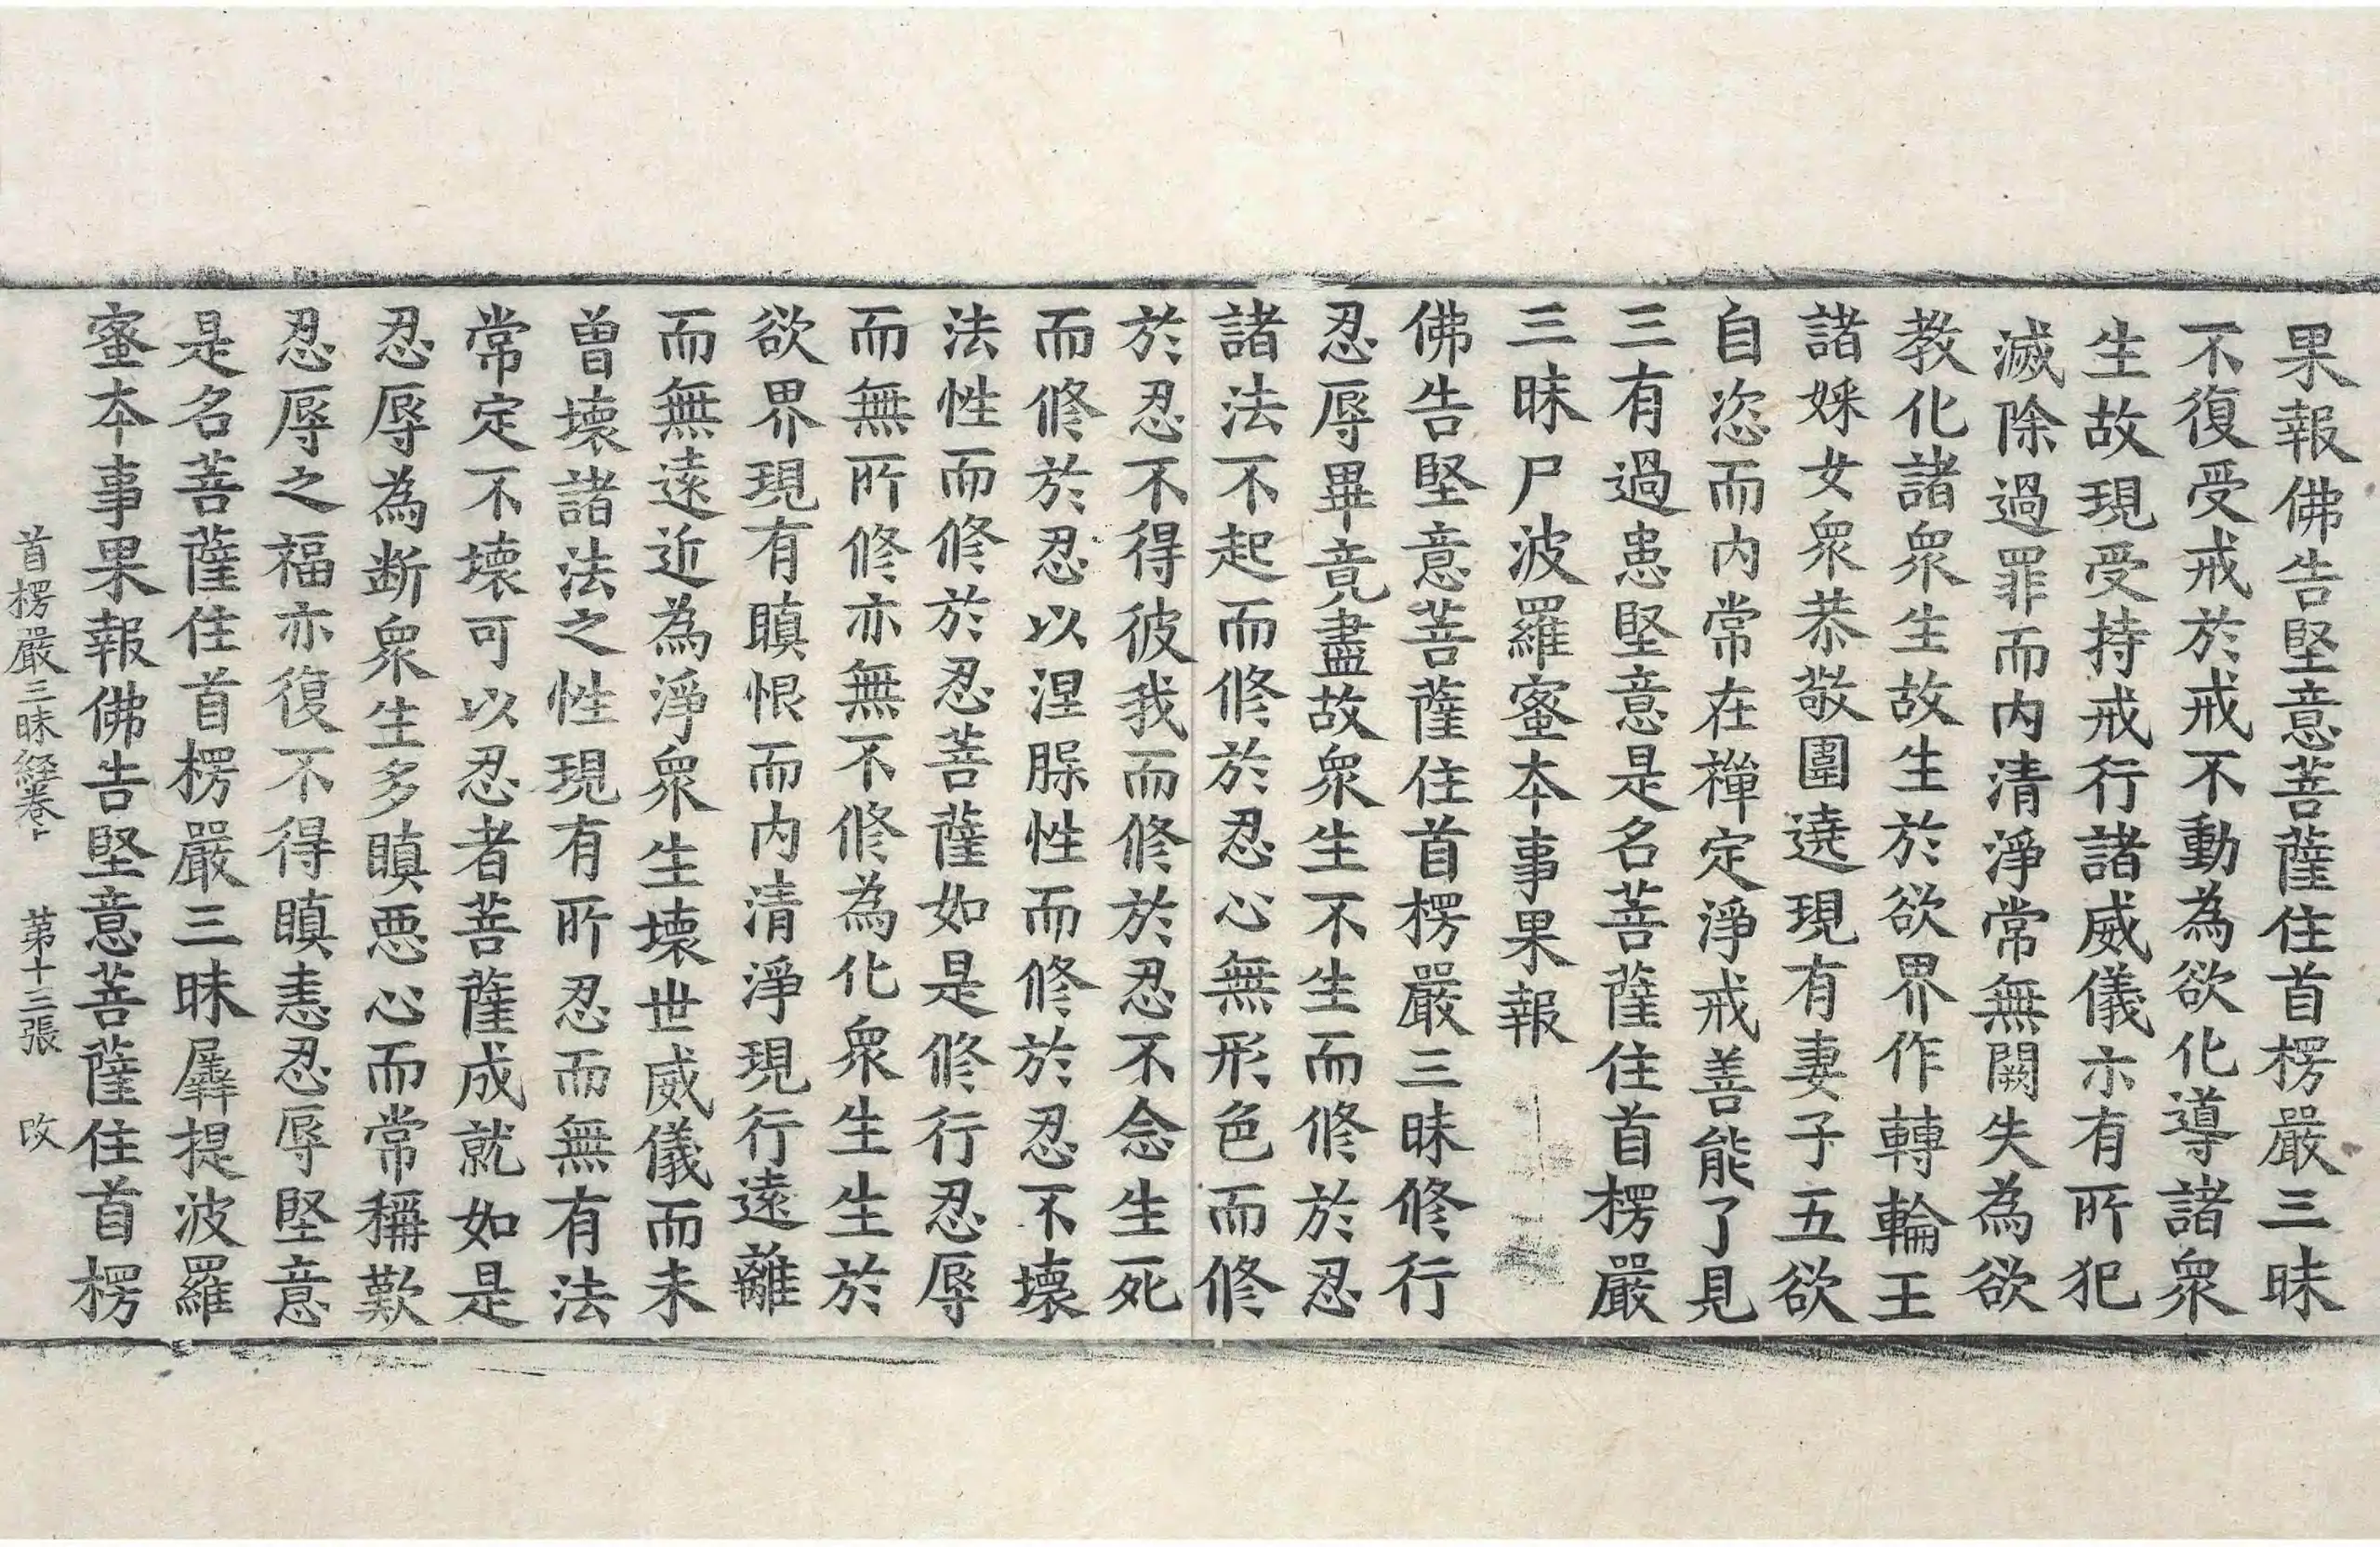 果報佛告堅意菩薩住首楞嚴三昧
不復受戒於戒不動為欲化導諸衆
生故現受持戒行諸威儀示有所犯
滅除過罪而内清淨常無闕失為欲
教化諸衆生故生於欲界作轉輪王
諸婇女衆恭敬圍遶現有妻子五欲
自恣而内常在禪定淨戒善能了見
三有過患堅意是名菩薩住首楞嚴
三昧尸波羅蜜本事果報
佛告堅意菩薩住首楞嚴三昧修行
忍辱畢竟盡故衆生不生而修於忍
諸法不起而修於忍心無形色而修
於忍不得彼我而修於忍不念生死
而修於忍以涅槃性而修於忍不壞
法性而修於忍菩薩如是修行忍辱
而無所修亦無不修為化衆生生於
欲界現有瞋恨而内清淨現行遠離
而無遠近為淨衆生壞世威儀而未
曾壞諸法之性現有所忍而無有法
常定不壞可以忍者菩薩成就如是
忍辱為断衆生多瞋惡心而常稱歎
忍辱之福亦復不得瞋恚忍辱堅意
是名菩薩住首楞嚴三昧羼提波羅
蜜本事果報佛告堅意菩薩住首楞
首楞嚴三昧経卷上 第十三張 改